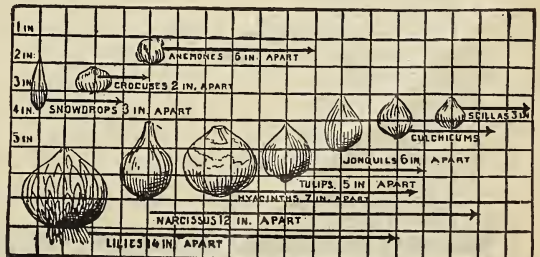 1 IN
2 IN.
ANEMONES 6 IN. APART
3 IN.
CROCUSES 2 IN. APART
4 IN.
SNOWDROPS 3 IN. APART
SCILLAS 3 IN
CULCHICUMS
5 IN
JONQUILS 6 IN APART
TULIPS. 5 IN APART
HYACINTHS. 7 IN. APART
NARCISSUS 12 IN. APART
LILIES 14 IN. APART